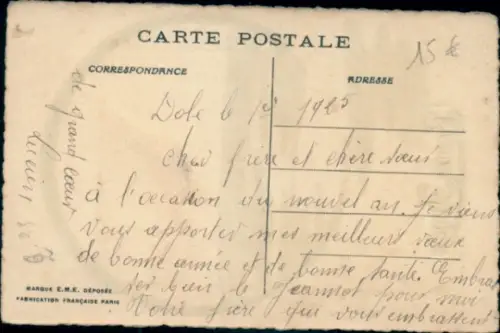 CARTE POSTALE
15 €
CORRESPONDANCE
ADRESSE
Dole le 1er 1925
Cher frère et chère sœur
à l'occasion du nouvel an Je viens
vous apporter mes meilleurs vœux
de bonne année et de bonne santé. Embras
ser bien le Jeannot pour moi
Votre frère qui vous embrassent
de grand cœur
MARQUE E.M.E. DÉPOSÉE
FABRICATION FRANÇAISE PARIS